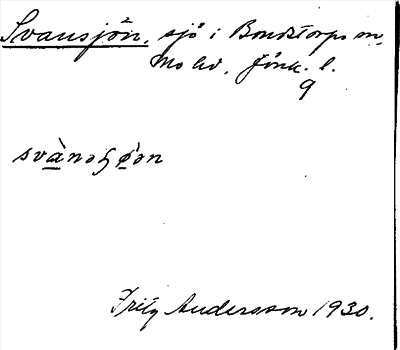 Svansjön, sjö i Bondstorps sn,
Mo hd, Jönk. l.
9
svànəɧö̀ən
Fritz Andersson 1930.